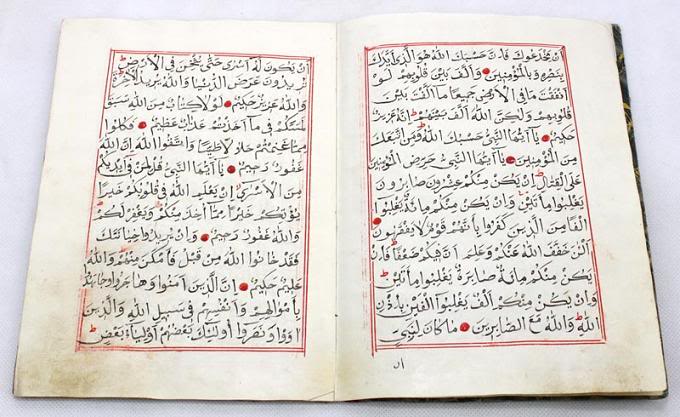 ان يخدعوك فان حسبك الله هو الذى ايدك
بنصره وبالمؤمنين والف بين قلوبهم لو
انفقت ما فى الارض جميعا ما الفت بين
قلوبهم ولكن الله الف بينهم انه عزيز
حكيم يا ايها النبى حسبك الله ومن اتبعك
من المؤمنين يا ايها النبى حرض المؤمنين
على القتال ان يكن منكم عشرون صابرون
يغلبوا مأتين وان يكن منكم مائة يغلبوا
الفا من الذين كفروا بأنهم قوم لا يفقهون
الئن خفف الله عنكم وعلم ان فيكم ضعفا فان
يكن منكم مائة صابرة يغلبوا مأتين
وان يكن منكم الف يغلبوا الفين باذن
الله والله مع الصابرين ما كان لنبى
ان يكون له اسرى حتى يثخن فى الارض
تريدون عرض الدنيا والله يريد الآخرة
والله عزيز حكيم لولا كتاب من الله سبق
لمسكم فى ما اخذتم عذاب عظيم فكلوا
مما غنمتم حلالا طيبا واتقوا الله ان الله
غفور رحيم يا ايها النبى قل لمن فى ايديكم
من الاسرى ان يعلم الله فى قلوبكم خيرا
يؤتكم خيرا مما اخذ منكم ويغفر لكم
والله غفور رحيم وان يريدوا خيانتك
فقد خانوا الله من قبل فأمكن منهم والله
عليم حكيم ان الذين آمنوا وهاجروا وجاهدوا
بأموالهم وانفسهم فى سبيل الله والذين
اووا ونصروا اولئك بعضهم اولياء بعض